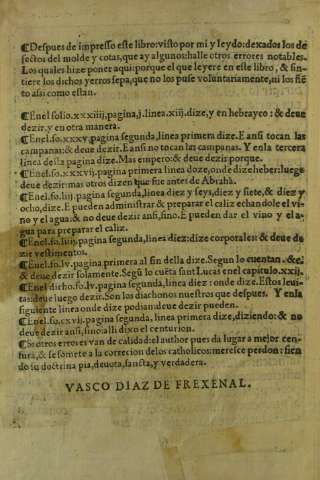 ¶Despues de impresso este libro: visto por mi y leydo: dexados los de
fectos del molde y cotas, que ay algunos: halle otros errores notables.
Los quales hize poner aqui: porque el que leyere en este libro, & sin-
tiere los dichos yerros sepa, que no los puse voluntariamente, ni los siẽ
to assi como estan.
¶Enel folio.xxxiiij, pagina, j. linea.xiij. dize, y en hebrayco: & deue
dezir, y en otra manera.
¶Enel.fo.xxxv, pagina segunda, linea primera dize. E ansi tocan las
campanas: & deue dezir. E ansi no tocan las campanas. Y enla tercera
linea desta pagina dize. Mas empero: & deue dezir porque.
¶Enel.fo.xxxvij. pagina primera linea doze, onde dize heber: luego
deue dezir: mas otros dizen que fue antes de Abrahã.
¶Enel.fo.lij, pagina segunda, linea diez y seys, diez y siete, & diez y
ocho, dize. E pueden administrar & preparar el caliz echandole el vi-
no y el agua: & no deue dezir ansi, sino. E pueden dar el vino y el a-
gua para preparar el caliz.
¶Enel.fo.liiij. pagina segunda, linea diez: dize corporales: & deue de
zir vestimentos.
¶Enel.fo.lv. pagina primera al fin della dize. Segun lo cuentan. &c.
& deue dezir solamente. Segũ lo cuẽta sant Lucas enel capitulo.xxij.
¶Enel dicho.fo.lv, pagina segunda, linea diez: onde dize. Estos leui-
tas: deue luego dezir. Son los diachonos nuestros que despues. Y enla
siguiente linea onde dize podian: deue dezir pueden.
¶Enel.fo.cxvij. pagina segunda, linea primera, dize, diziendo: & no
deue dezir ansi, sino: alli dixo el centurion.
¶Si otros errores van de calidad: el author pues da lugar a mejor cen-
sura, & se somete a la correcion delos catholicos: meresce perdon: sien
do su doctrina pia, deuota, sancta, y verdadera.
VASCO DIAZ DE FREXENAL.